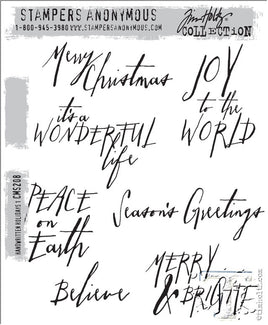 STAMPERS ANONYMOUS
1-800-945-3980 www.STAMPERSANONYMOUS.COM
Tim Holtz
COLLECTION
Merry
Christmas
JOY
to the
WORLD
it's a
WONDERFUL
life
PEACE
on
Earth
Season's Greetings
Believe
MERRY
& BRIGHT
HANDWRITTEN HOLIDAYS 1 CMS208
timholtz.com